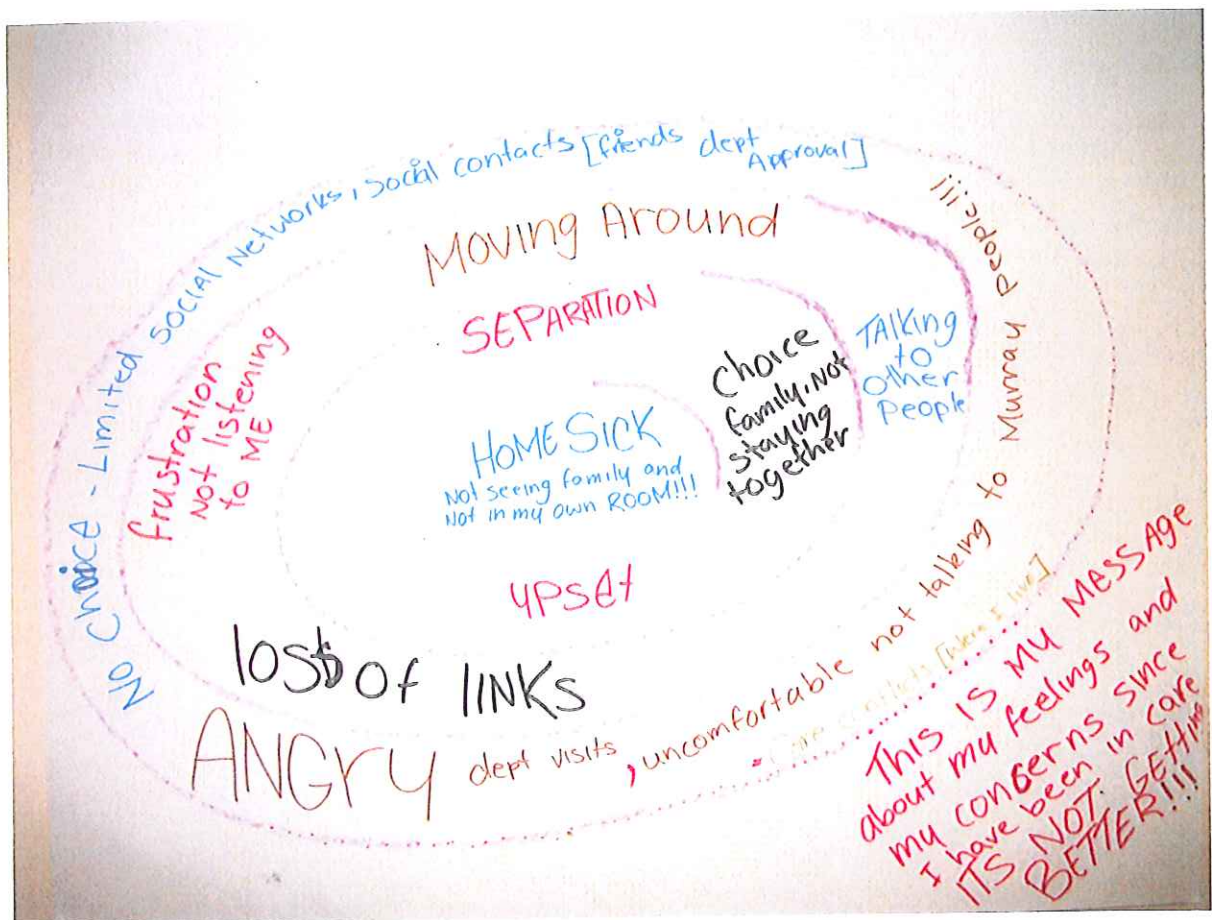 No Choice - Limited Social Networks, Social contacts [fiends dept
Approval]
Moving Around
SEPARATION
HOMESICK
Not seeing family and
Not in my own ROOM!!!
Choice
family, Not
staying
together
TALKing
to
Other
People
frustration
Not listening
to ME
upset
loss of links
ANGry dept visits, uncomfortable not talking to Murray People!!!
[where I live]
This is my message
about my feelings and
my concerns since
I have been in care
ITS NOT GETTING
BETTER!!!